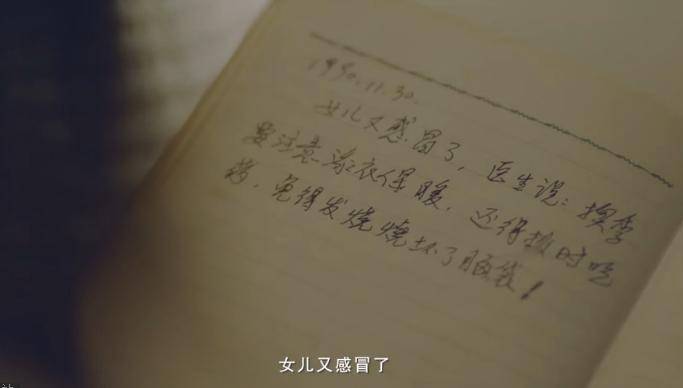 1990.11.30.
女儿又感冒了，医生说：换季
要注意添衣保暖，还得按时吃
药，免得发烧烧坏了脑袋！
女儿又感冒了